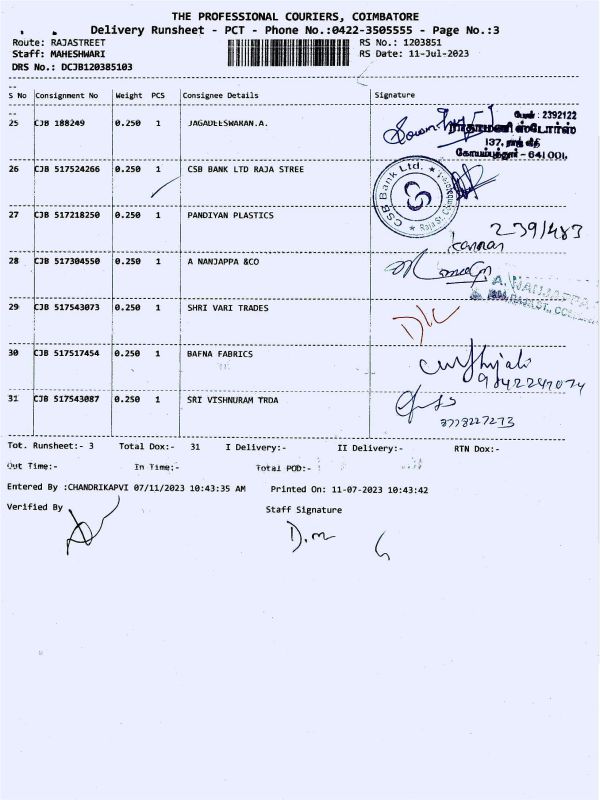 THE PROFESSIONAL COURIERS, COIMBATORE
Delivery Runsheet - PCT - Phone No.:0422-3505555 - Page No.:3
Route: RAJASTREET RS No.: 1203851
Staff: MAHESHWARI RS Date: 11-Jul-2023
DRS No.: DCJB120385103
S No Consignment No Weight PCS Consignee Details Signature
போன் : 2392122
25 CJB 188249 0.250 1 JAGADEESWARAN.A. ஸ்டோர்ஸ்
137, ராஜ வீதி
கோயம்புத்தூர் - 641 001.
26 CJB 517524266 0.250 1 CSB BANK LTD RAJA STREE
CSB Bank Ltd. ★ Raja St.
27 CJB 517218250 0.250 1 PANDIYAN PLASTICS
239/483
kannan
28 CJB 517304550 0.250 1 A NANJAPPA &CO
A. NANJAPPA
29 CJB 517543073 0.250 1 SHRI VARI TRADES
D/L
30 CJB 517517454 0.250 1 BAFNA FABRICS
9842247074
31 CJB 517543087 0.250 1 SRI VISHNURAM TRDA
8778227273
Tot. Runsheet:- 3 Total Dox:- 31 I Delivery:- II Delivery:- RTN Dox:-
Out Time:- In Time:- Total POD:-
Entered By :CHANDRIKAPVI 07/11/2023 10:43:35 AM Printed On: 11-07-2023 10:43:42
Verified By Staff Signature
D.m